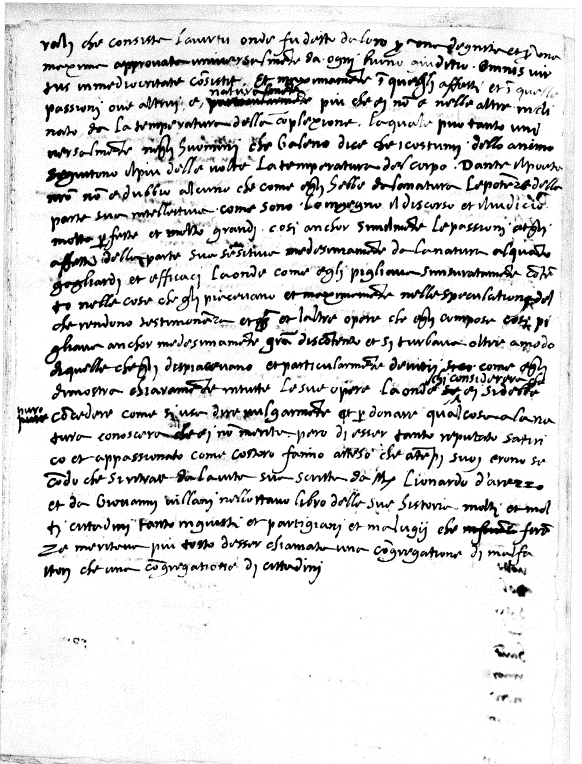 rali che consiste la virtu onde fu detto da loro per una degnità et per una
maxima approvata universalmente da ogni huno auditto. Omnis vir
tus in mediocritate consistit. Et maximamente in quegli affetti et in quelle
passioni ove altrui e, naturalmente più che ei non e nelle altre incli
nato, da la temperatura della complexione. la quale può tanto uni
versalmente negli huomini che Galeno dice che i costumi dello animo
seguitono il più delle volte la temperatura del corpo. Dante il poeta
nostro non e dubbio alcuno che come egli hebbe da la natura le potenze della
parte sua intellettiva come sono lo ingegno il discorso et il iudicio
molto perfette et molto grandi. così anchor similmente le passioni et gli
affetti della parte sua sensitiva medesimamente da la natura alquanto
gagliardi et efficaci la onde come egli pigliava smisuratamente conten
to nelle cose che gli piacevano et maximamente nelle speculationi del
che rendono testimonanza et et l altre opere che egli compose così pi
gliava anchor medesimamente gran discontento et si turbava oltre a modo
di quelle che gli dispiacevano et particularmente de vitii come egli
dimostra chiaramente in tutte le sue opere la onde chi considererà ciò ei si debbe
pure concedere come si usa dire vulgarmente et per donare qualcosa a la na
tura conoscerà che ei non merita però di esser tanto reputato satiri
co et appassionato come costoro fanno atteso che a tempi suoi erono se
condo che si ritrae da la vita sua scritta da M. Lionardo d'arezzo
et da Giovanni villani nello ottavo libro delle sue historie molti et mol
ti cittadini tanto ingiusti et partigiani et malvagii che firen
ze meritava più tosto desser chiamata una congregatione di malfa
ttori che una congregatione di cittadini